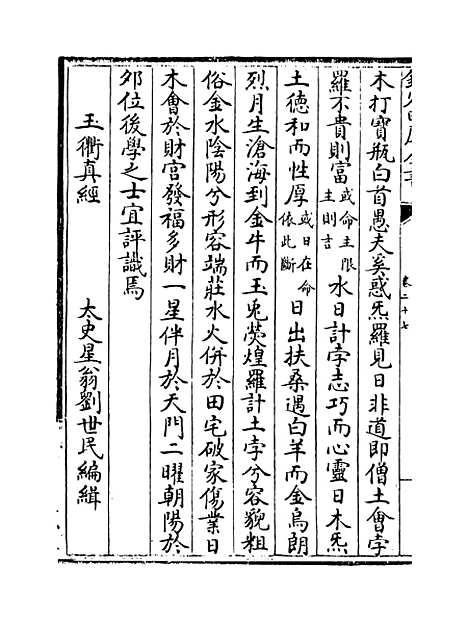 卷二十七
木打寶瓶白首愚夫奚惑炁羅見日非道即僧土會孛
羅不貴則富或命主限主則言水日計孛志巧而心靈日木炁
土德和而性厚或日在命依此斷日出扶桑遇白羊而金烏朗
烈月生滄海到金牛而玉兎熒煌羅計土孛兮容貌粗
俗金水陰陽兮形容端莊水火併於田宅破家傷業日
木會於財宫發福多財一星伴月於天門二曜朝陽於
夘位後學之士宜評議焉
玉衡真經　太史星翁劉世民編緝